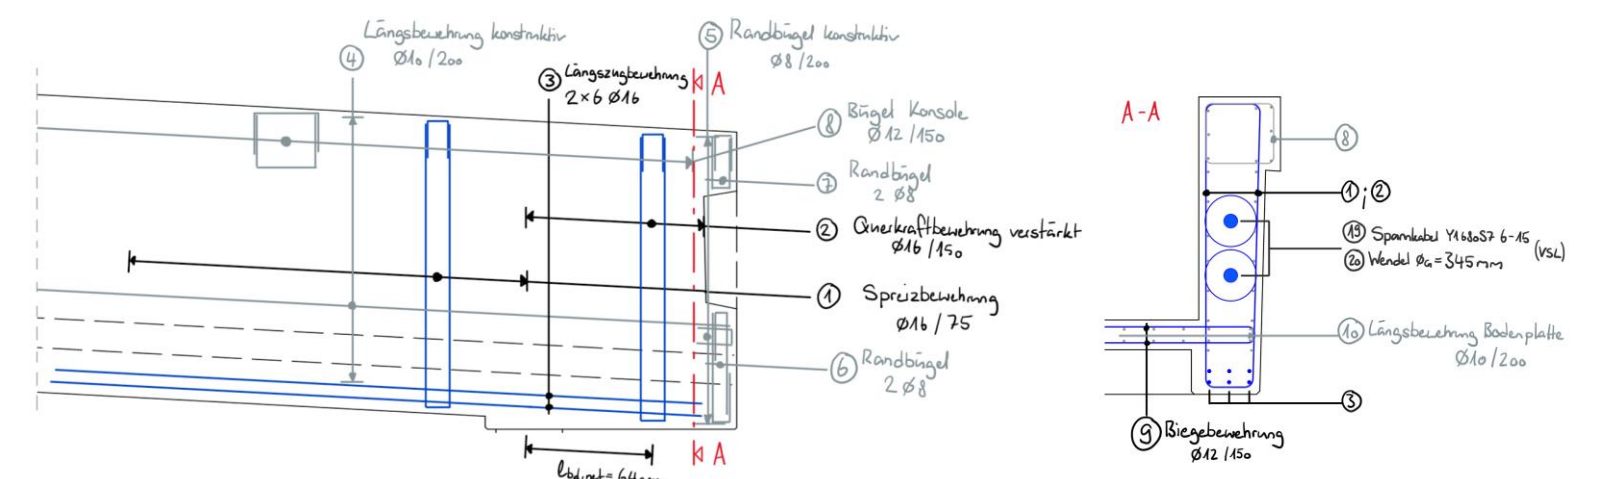 ④ Längsbewehrung konstruktiv
Ø10/200
③ Längszugbewehrung
2×6 Ø16
⑤ Randbügel konstruktiv
Ø8/200
A
⑧ Bügel Konsole
Ø12/150
⑦ Randbügel
2 Ø8
② Querkraftbewehrung verstärkt
Ø16/150
① Spreizbewehrung
Ø16/75
⑥ Randbügel
2 Ø8
A
A-A
⑧
①;②
⑲ Spannkabel Y1680S7 6-15 (VSL)
⑳ Wendel ØG=345mm
⑩ Längsbewehrung Bodenplatte
Ø10/200
③
⑨ Biegebewehrung
Ø12/150